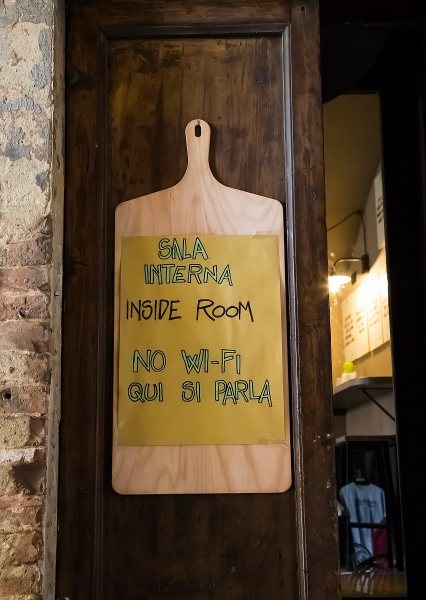 SALA
INTERNA
INSIDE ROOM
NO WI-FI
QUI SI PARLA